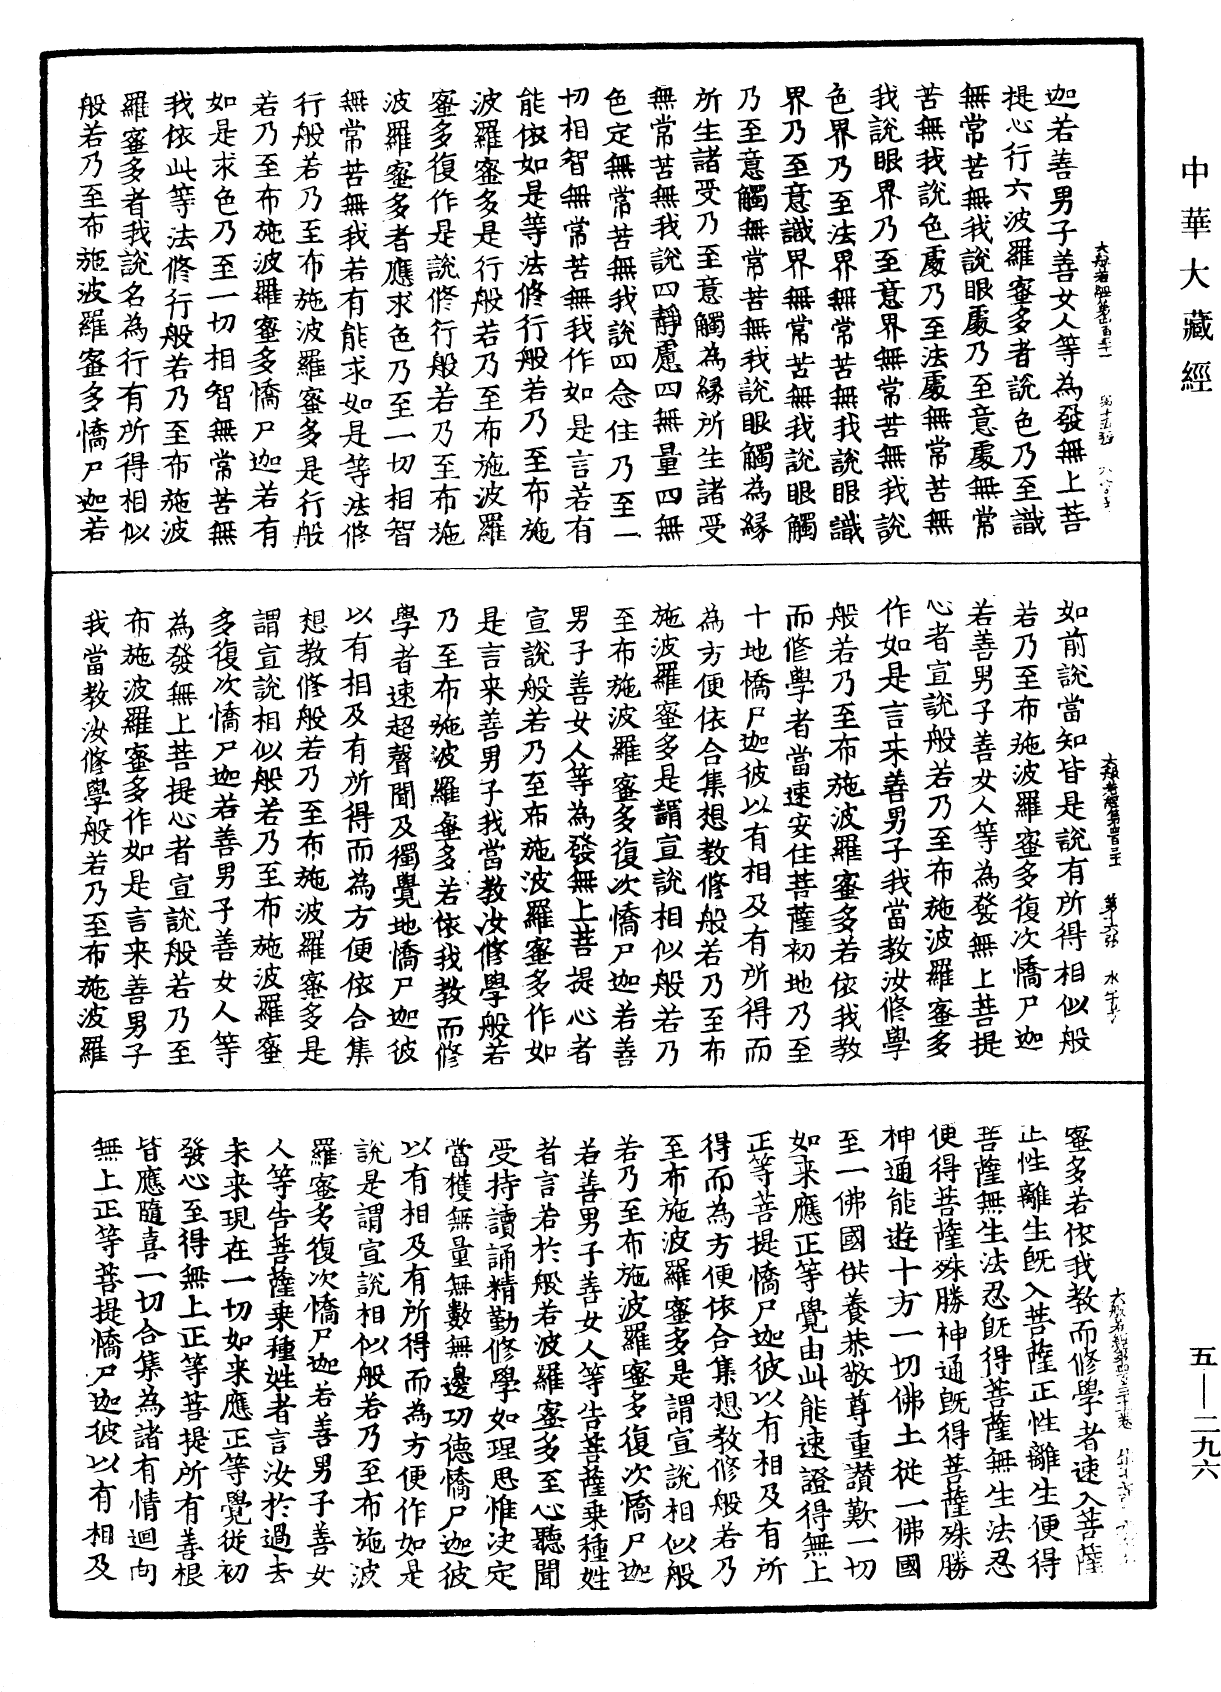 中華大藏經
迦若善男子善女人等為發無上菩
提心行六波羅蜜多者說色乃至識
無常苦無我說眼處乃至意處無常
苦無我說色處乃至法處無常苦無
我說眼界乃至意界無常苦無我說
色界乃至法界無常苦無我說眼識
界乃至意識界無常苦無我說眼觸
乃至意觸無常苦無我說眼觸為緣
所生諸受乃至意觸為緣所生諸受
無常苦無我說四靜慮四無量四無
色定無常苦無我說四念住乃至一
切相智無常苦無我作如是言若有
能依如是等法修行般若乃至布施
波羅蜜多是行般若乃至布施波羅
蜜多復作是說修行般若乃至布施
波羅蜜多者應求色乃至一切相智
無常苦無我若有能求如是等法修
行般若乃至布施波羅蜜多是行般
若乃至布施波羅蜜多憍尸迦若有
如是求色乃至一切相智無常苦無
我依此等法修行般若乃至布施波
羅蜜多者我說名為行有所得相似
般若乃至布施波羅蜜多憍尸迦若
如前說當知皆是說有所得相似般
若乃至布施波羅蜜多復次憍尸迦
若善男子善女人等為發無上菩提
心者宣說般若乃至布施波羅蜜多
作如是言来善男子我當教汝修學
般若乃至布施波羅蜜多若依我教
而修學者當速安住菩薩初地乃至
十地憍尸迦彼以有相及有所得而
為方便依合集想教修般若乃至布
施波羅蜜多是謂宣說相似般若乃
至布施波羅蜜多復次憍尸迦若善
男子善女人等為發無上菩提心者
宣說般若乃至布施波羅蜜多作如
是言来善男子我當教汝修學般若
乃至布施波羅蜜多若依我教而修
學者速超聲聞及獨覺地憍尸迦彼
以有相及有所得而為方便依合集
想教修般若乃至布施波羅蜜多是
謂宣說相似般若乃至布施波羅蜜
多復次憍尸迦若善男子善女人等
為發無上菩提心者宣說般若乃至
布施波羅蜜多作如是言来善男子
我當教汝修學般若乃至布施波羅
蜜多若依我教而修學者速入菩薩
正性離生旣入菩薩正性離生便得
菩薩無生法忍旣得菩薩無生法忍
便得菩薩殊勝神通旣得菩薩殊勝
神通能遊十方一切佛土從一佛國
至一佛國供養恭敬尊重讃歎一切
如来應正等覺由此能速證得無上
正等菩提憍尸迦彼以有相及有所
得而為方便依合集想教修般若乃
至布施波羅蜜多是謂宣說相似般
若乃至布施波羅蜜多復次憍尸迦
若善男子善女人等告菩薩乘種姓
者言若於般若波羅蜜多至心聽聞
受持讀誦精勤修學如理思惟決定
當獲無量無數無邊功德憍尸迦彼
以有相及有所得而為方便作如是
說是謂宣說相似般若乃至布施波
羅蜜多復次憍尸迦若善男子善女
人等告菩薩乘種姓者言汝於過去
未来現在一切如来應正等覺從初
發心至得無上正等菩提所有善根
皆應隨喜一切合集為諸有情迴向
無上正等菩提憍尸迦彼以有相及
五—二九六